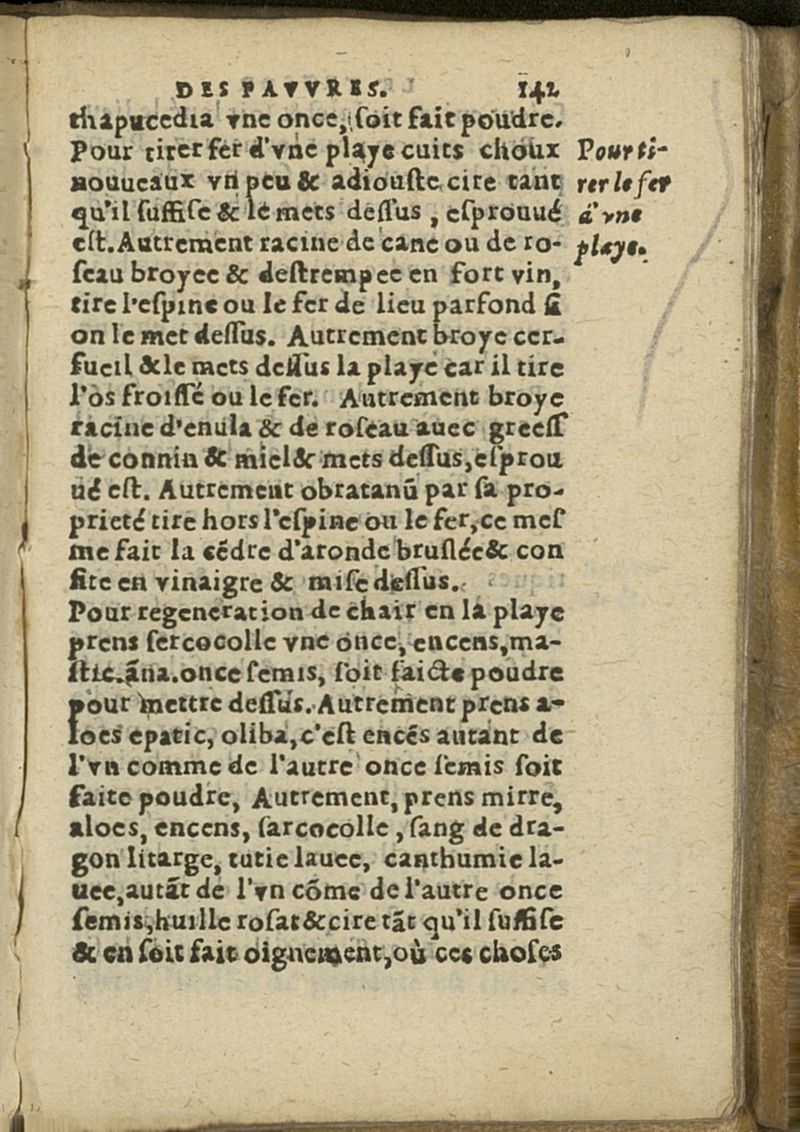 DES PAVVRES. 142
thapucedia vne once, ſoit fait poudre.
Pour tirer fer d'vne playe cuits choux
nouueaux vn peu & adiouſte cire tant
qu'il ſuffiſe & le mets deſſus, eſprouué
eſt. Autrement racine de cane ou de ro-
ſeau broyee & deſtrempee en fort vin,
tire l'eſpine ou le fer de lieu parfond ſi
on le met deſſus. Autrement broye cer-
fueil & le mets deſſus la playe car il tire
l'os froiſſé ou le fer. Autrement broye
racine d'enula & de roſeau auec greeſſ
de connin & miel & mets deſſus, eſprou
ué eſt. Autrement obratanū par ſa pro-
prieté tire hors l'eſpine ou le fer, ce meſ
me fait la cēdre d'aronde bruſlée & con
fite en vinaigre & miſe deſſus.
Pour regeneration de chair en la playe
prens ſercocolle vne once, encens, ma-
ſtic. āna. once ſemis, ſoit faicte poudre
pour mettre deſſus. Autrement prens a-
loes epatic, oliba, c'eſt encés autant de
l'vn comme de l'autre once ſemis ſoit
faite poudre, Autrement, prens mirre,
aloes, encens, ſarcocolle, ſang de dra-
gon litarge, tutie lauee, canthumie la-
uee, autāt de l'vn cōme de l'autre once
ſemis, huille roſat & cire tāt qu'il ſuffiſe
& en ſoit fait oignement, où ces choſes
Pour ti-
rer le fer
d'vne
playe.